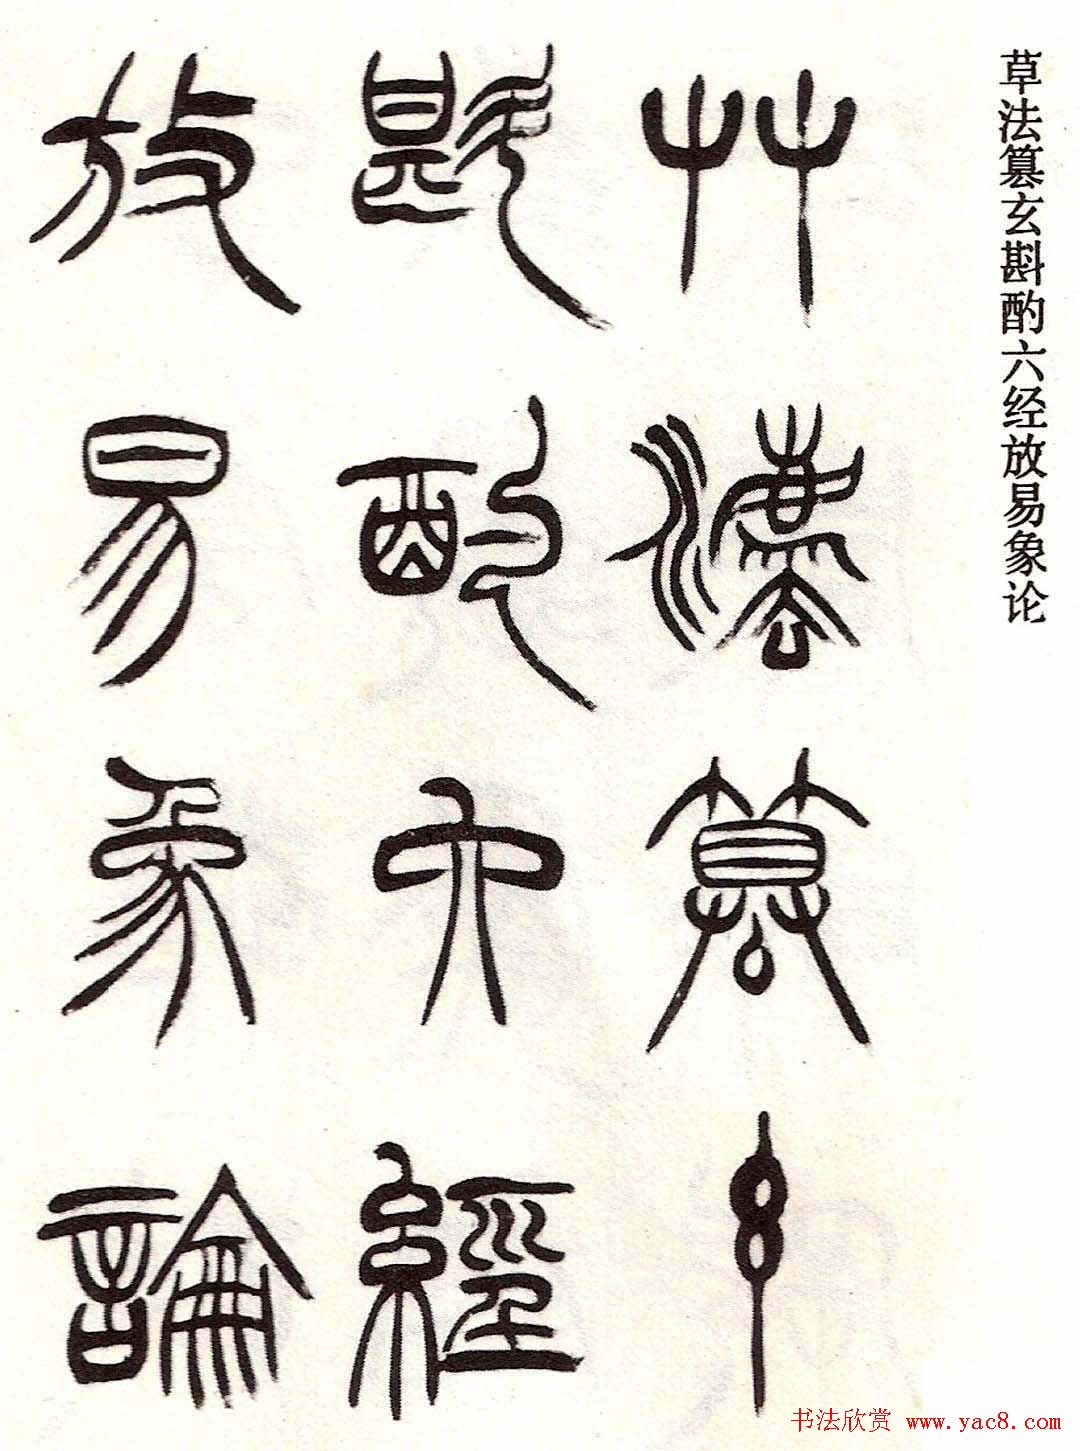 草法篡玄斟酌六经放易象论
艸灋篡玄
斟酌六經
放易象論
书法欣赏 www.yac8.com